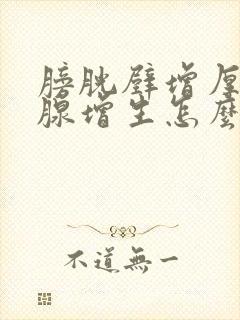 膀胱壁增厚
腺增生怎麼
不道無一